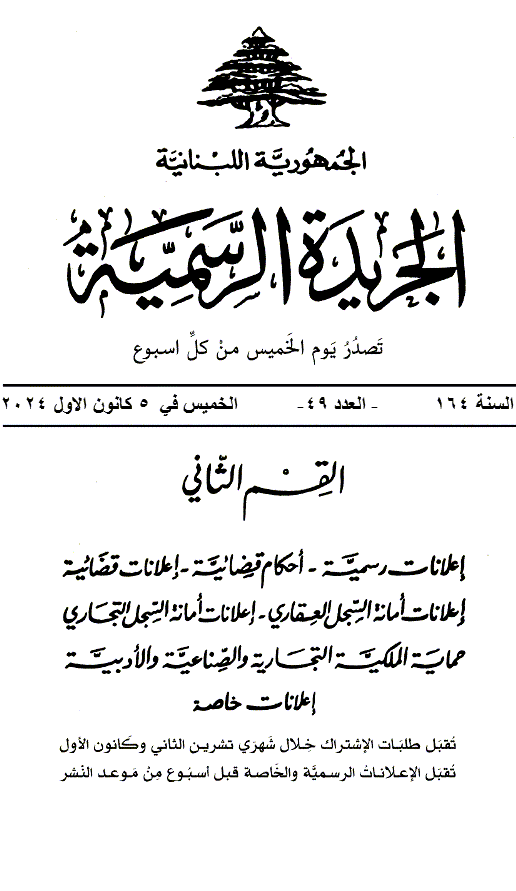 الجمهورية اللبنانية
الجريدة الرسمية
تَصدُرُ يَوم الخَميس منْ كلِّ اسبوع
السنة ١٦٤ - العدد ٤٩ - الخميس في ٥ كانون الاول ٢٠٢٤
القِسْم الثّاني
إعلانات رسميَّة - أحكام قضائيَّة - إعلانات قضائية
إعلانات أمانة السِّجل العِقاري - إعلانات أمانة السِّجل التجاري
حماية الملكيَّة التجارية والصِّناعيَّة والأدبيَّة
إعلانات خاصة
تُقبَل طلبَات الإشتراك خِلال شَهرَي تشرين الثاني وكَانون الأول
تُقبَل الإعلاناتُ الرسميَّة والخَاصة قبل أسبُوع مِنْ مَوعد النّشر